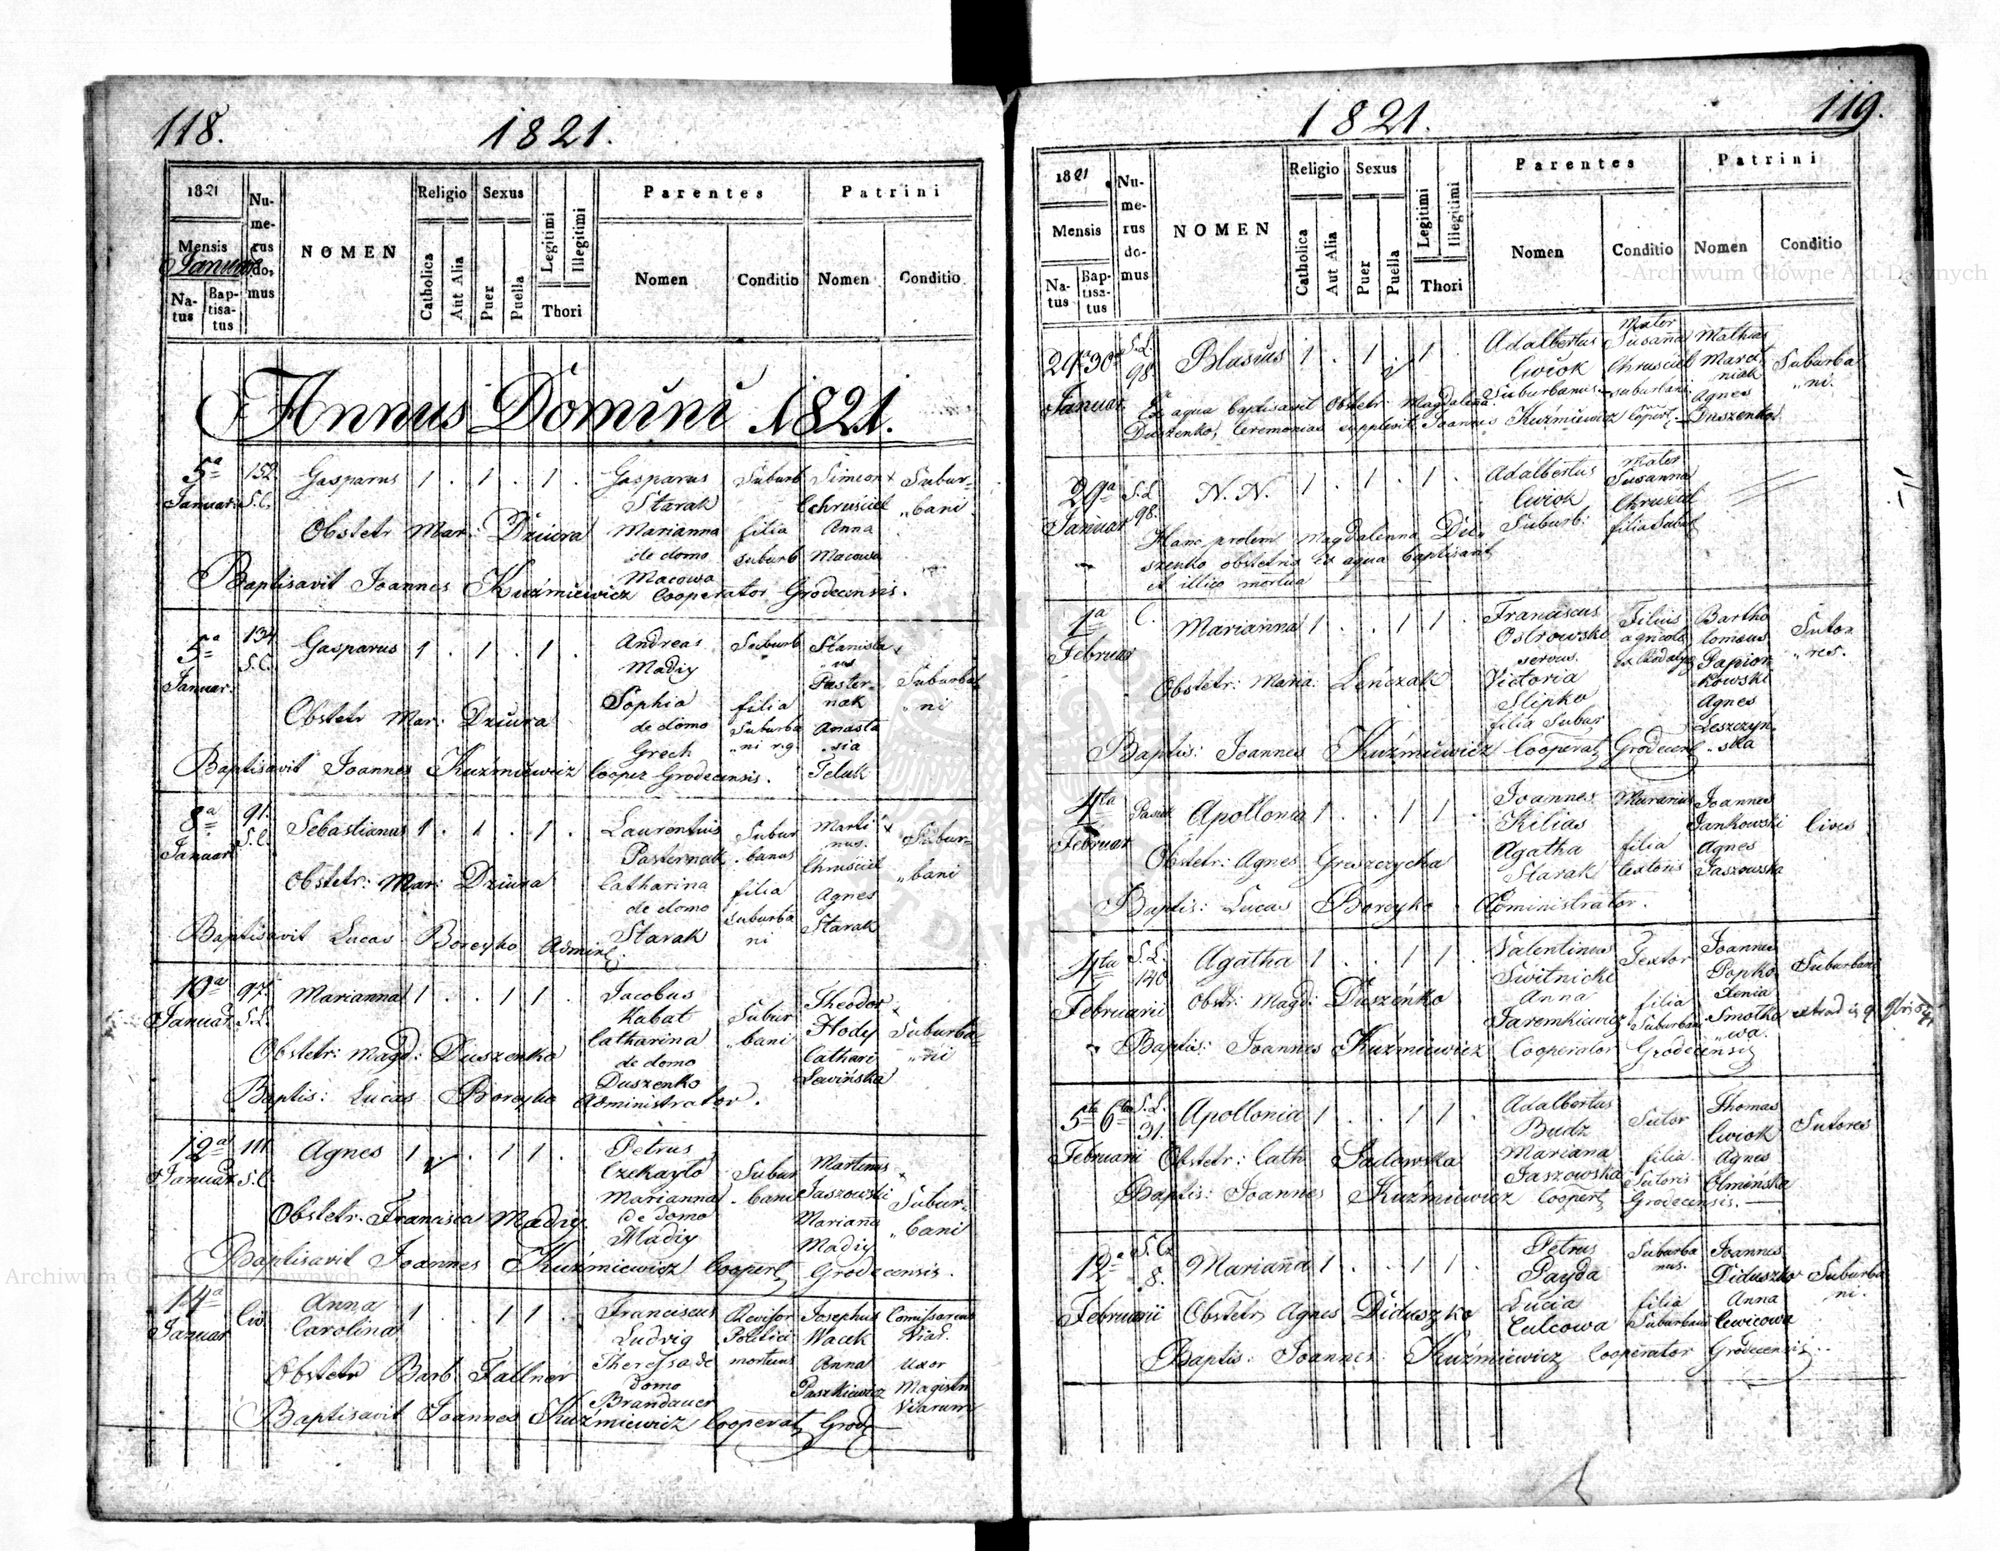 118.
1821.
1821
Numerus domus
NOMEN
Religio
Sexus
Legitimi
Illegitimi
Parentes
Patrini
Mensis
Januar
Natus
Baptisatus
Catholica
Aut Alia
Puer
Puella
Thori
Nomen
Conditio
Nomen
Conditio
Annus Domini 1821.
5a 152 Gasparus 1 . 1 . 1 . Gasparus Suburb Simeon Subur-
Januar: S.C. Starak Chrusciel „bani
Obstetr Mar: Dziura Marianna filia Anna
de domo suburb Macowa
Macowa
Baptisavit Joannes Kuźmiewicz Cooperator Grodecensis.
5a 134 Gasparus 1 . 1 . 1 . Andreas Suburb Stanisla
Januar. S.C. Madiy „us
Paster- Suburba
Sophia filia nak „ni
Obstetr Mar: Dziura de domo Suburba Anasta
Grech „ni r.g. „sia
Baptisavit Joannes Kuźmiewicz Cooper Grodecensis. Teluk
8a 91. Sebastianus 1 . 1 . 1 . Laurentius Subur Marti Subur-
Januar S.C. Pasternak „banus nus „bani
Chrusciel
Obstetr: Mar: Dziura Catharina filia Agnes
de domo suburba Starak
Starak ni
Baptisavit Lucas Boreyko
10a 97. Marianna 1 . . 1 1 . Jacobus Subur Theodor Suburba
Januar S.L. Kabat „bani Hody „ni
Catharina Cathari
Obstetr: Magd: Duszenka de domo Lewińska
Duszenko
Baptis: Lucas Boreyko Administrator.
12a 111 Agnes 1 . . 1 1 . Petrus Subur Martinus Subur-
Januar S.C. Czekayło „bani Jaszowski „bani
Marianna Mariana
Obstetr. Francisca Madiy. de domo Madiy
Madiy
Baptisavit Joannes Kuźmiewicz Cooper Grodecensis.
14a Civ Anna 1 . . 1 1 . Franciscus Revisor Josephus Comissarius
Januar Carolina Ludvig Politia Wacek Viar.
Theressa de mortuus Anna uxor
Obstetr Barb Fallner domo Paszkiewicz Magistri
Brandauer Viarum
Baptisavit Joannes Kuźmiewicz Cooperat Grod
119.
1821.
1821
Numerus domus
NOMEN
Religio
Sexus
Legitimi
Illegitimi
Parentes
Patrini
Mensis
Natus
Baptisatus
Catholica
Aut Alia
Puer
Puella
Thori
Nomen
Conditio
Nomen
Conditio
29a 30a S.L. Blasius 1 . 1 . 1 . Adalbertus Mater Mathias
98 Cwiok Susana Marci Suburba
Januar Suburbanus Chrusciel niak „ni.
Ex aqua baptisavit Obstetr: Magdalena suburbani Agnes
Duszenko, Ceremonias supplevit Joannes Kuźmiewicz Coper Duszenko
29a S.L. N. N. 1 . 1 . 1 . Adalbertus Mater
Januar 98. Cwiok Susanna
Suburb: Chrusciel
Hanc prolem Magdalenna Du- filia Subur
szenko obstetrix Ex aqua baptisavit
et illico mortua
1a C. Marianna 1 . . 1 1 . Franciscus Filius Bartho Suto-
Februar Ostrowski agricola lomaeus „res.
servus. Papion
Obstetr: Maria: Leńczak Victoria kowski
Slipko Agnes
filia Subur Leszczyn
Baptis: Joannes Kuźmiewicz Cooperat Grodecens „ska
4ta Apollonia 1 . . 1 1 . Joannes Murarius Joannes Cives
Februar Kilias Jankowski
Agatha filia Agnes
Obstetr: Agnes Greszczycha Starak textoris Jaszowska
Baptis: Lucas Boreyko Administrator.
4ta S.L. Agatha 1 . . 1 1 . Valentinus Textor Joannes Suburbani
140 Switnicki Popko
Februarii Obstr: Magd: Duszeńko Anna filia Xenia
Jaremkiewicz Suburbani Smotko
Baptis: Joannes Kuźmiewicz Cooperator Grodecensis „wa.
5ta 6ta S.L. Apollonia 1 . . 1 1 . Adalbertus Sutor Thomas Sutores
31. Budz Cwiok
Februarii Obstetr: Cath Sadowska Mariana filia Agnes
Jaszowska Sutoris Olmińska
Baptis: Joannes Kuźmiewicz Cooper Grodecensis.
12a S.L. Mariana 1 . . 1 1 . Petrus Suburba Joannes Suburba
8. Payda nus. Diduszko ni.
Februarii Obstetr Agnes Diduszko Lucia filia Anna
Culcowa Suburbani Cwicowa
Baptis: Joannes: Kuźmiewicz Cooperator Grodecensis.
Archiwum Główne Akt Dawnych
Archiwum Główne Akt Dawnych